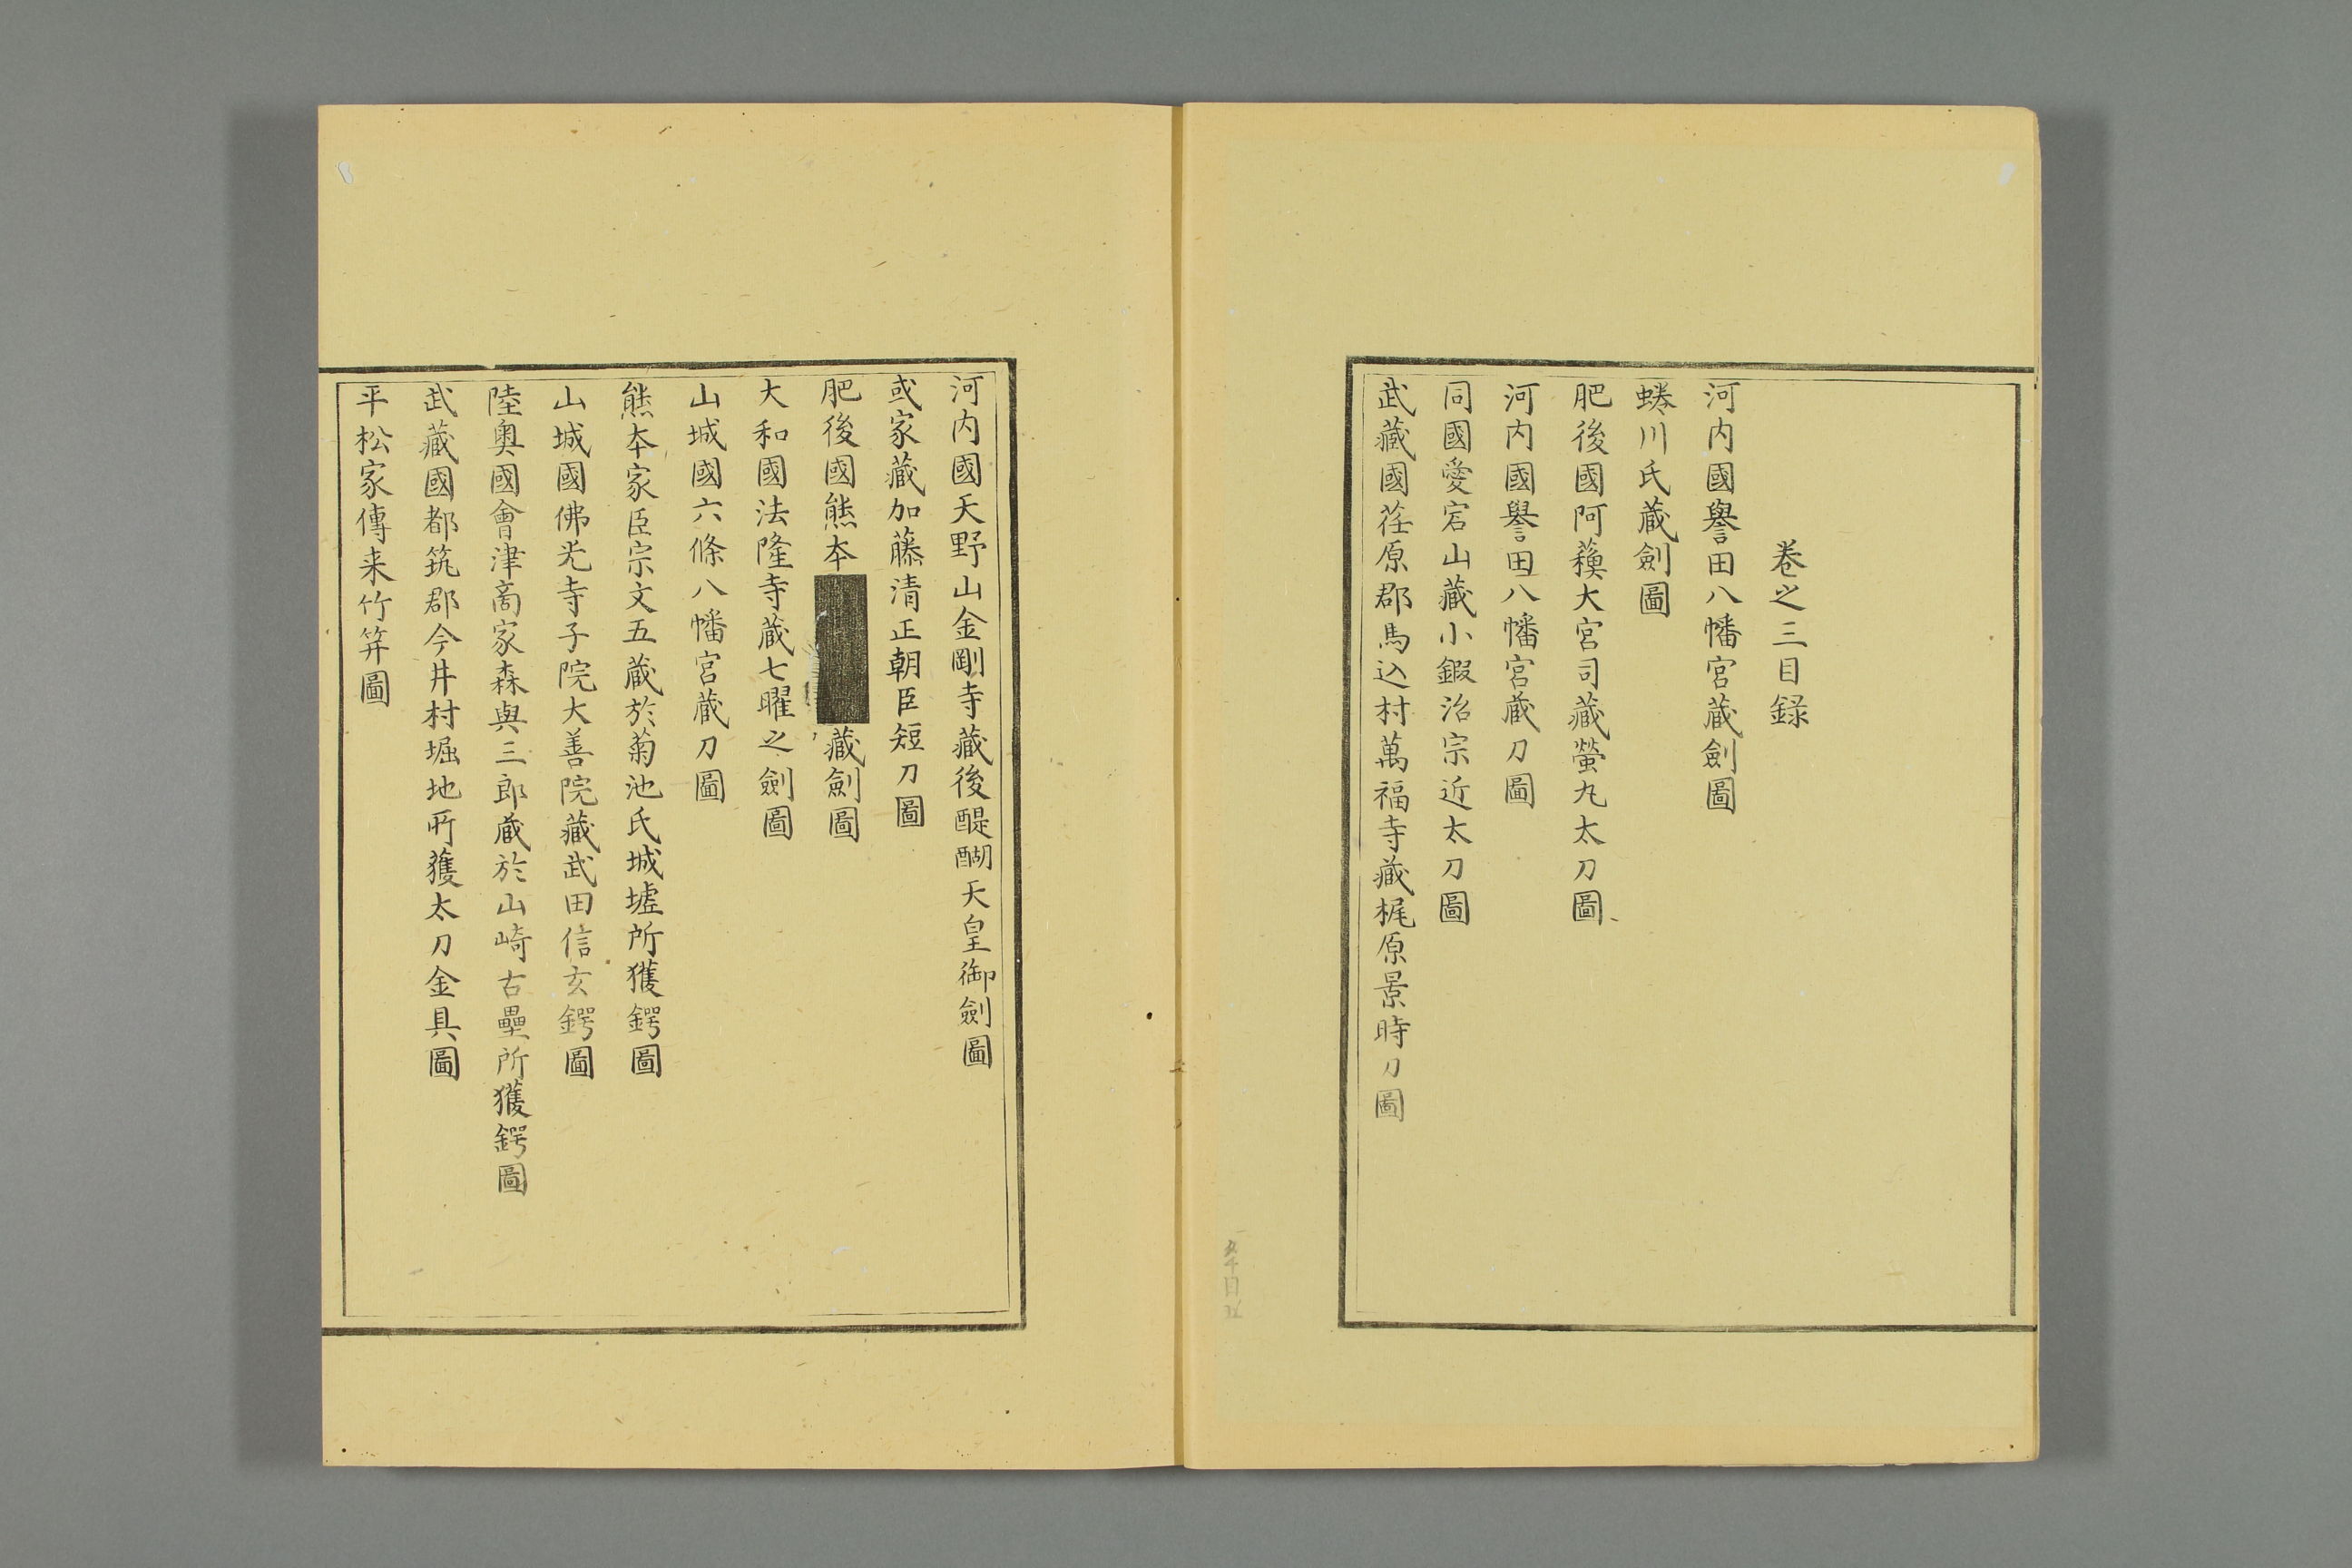 巻之三目録
河内國譽田八幡宮藏劍圖
蜷川氏藏劍圖
肥後國阿蘓大宮司藏螢丸太刀圖
河内國譽田八幡宮藏刀圖
同國愛宕山藏小鍜冶宗近太刀圖
武藏國荏原郡馬込村萬福寺藏梶原景時刀圖
河内國天野山金剛寺藏後醍醐天皇御劍圖
或家藏加藤清正朝臣短刀圖
肥後國熊本藏劍圖
大和國法隆寺藏七曜之劍圖
山城國六條八幡宮藏刀圖
熊本家臣宗文五藏於菊池氏城墟所獲鍔圖
山城國佛光寺子院大善院藏武田信玄鍔圖
陸奥國會津商家森與三郎藏於山崎古壘所獲鍔圖
武藏國都筑郡今井村堀地所獲太刀金具圖
平松家傳来竹笄圖